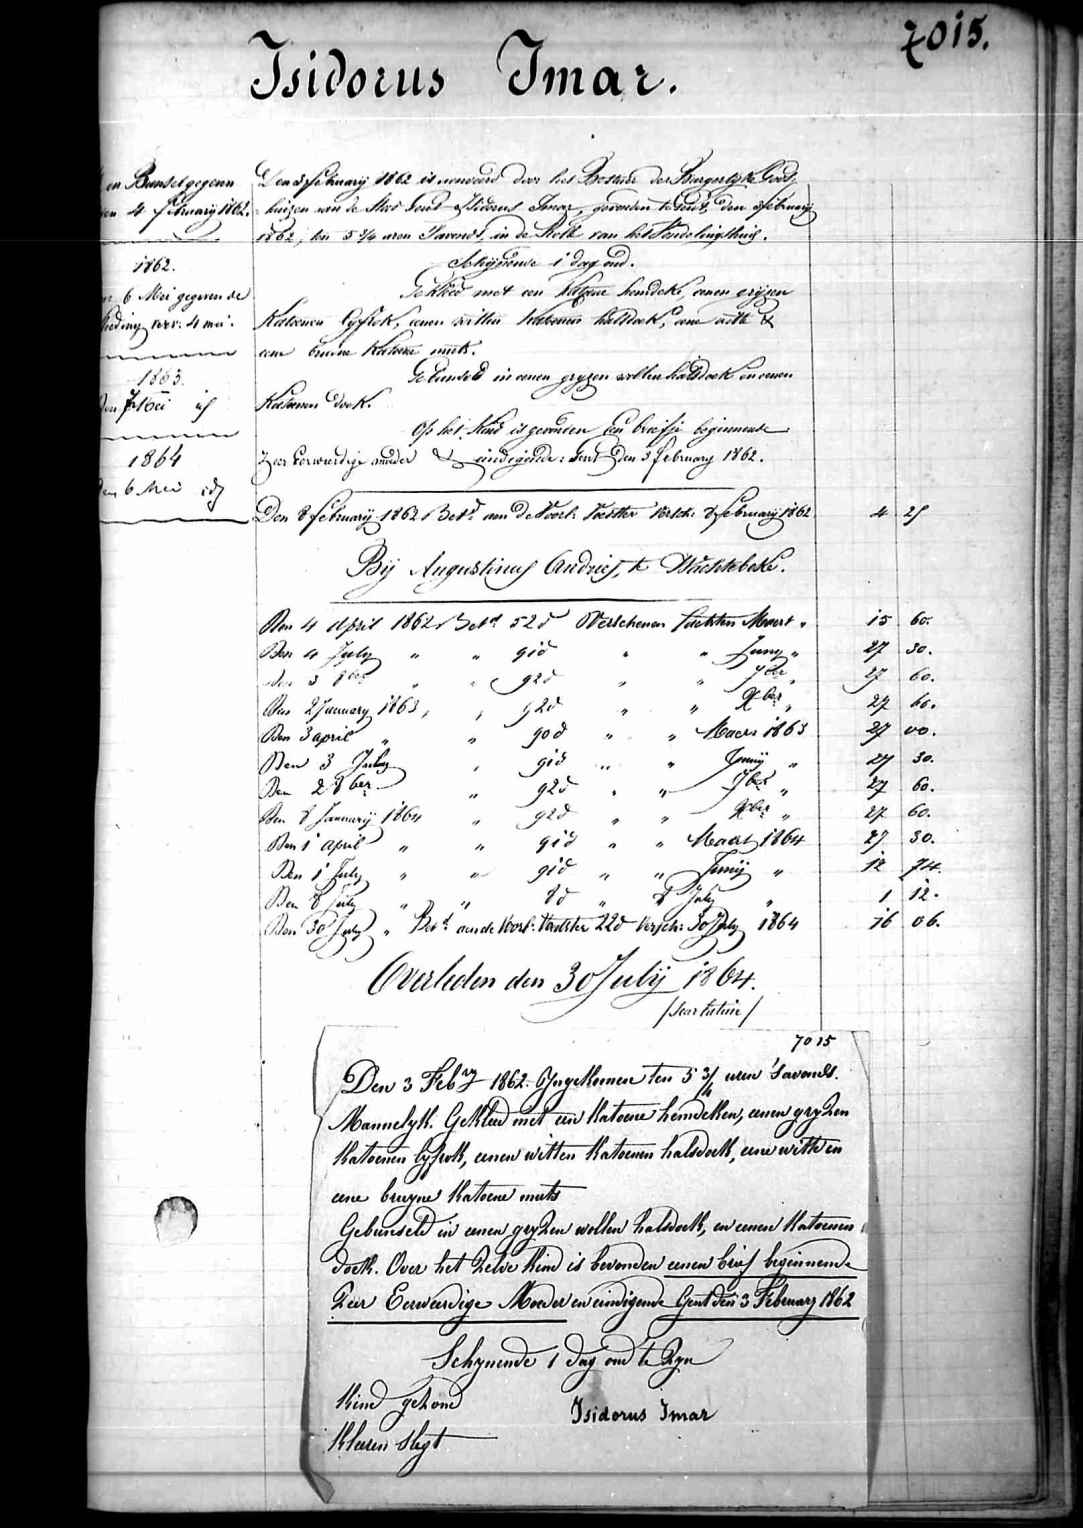 7015.
Isidorus Imar.
en Bunsel gegeven
en 4 february 1862.
1862.
6 Mei gegeven de
kleding ver: 4 mei.
1863.
den 7 Mei id
1864
den 6 Mei id
Den 3 february 1862 is aenveerd door het Bestuer der Burgerlyke Gods
huizen van de Stad Gend Isidorus Imar, gevonden te Gend, den 3 february
1862, ten 5 3/4 uren 's avonds, in de Rolle van het Vondelingshuis.
Schijnende 1 dag oud.
Gekleed met een katoene hemdeke, eenen grijzen
Katoenen lyfrok, eenen witten katoenen halsdoek, eene witte &
eene bruine katoene muts.
Gebunseld in eenen gryzen wollen halsdoek en eenen
Katoenen doek.
Op het kind is gevonden een briefje beginnende
Zeer Eerweerdige moeder & eindigende: Gent den 3 february 1862.
Den 8 february 1862 Bet.d aan de Voorl: Voedster Versch: 8 february 1862 4 25
Bij Augustinus Andries, te Wachtebeke.
Den 4 April 1862 Bet.d 52 d Verschenen Voedster Maert " 15 60.
Den 4 July " " 91 d " " Juny " 27 30.
Den 3 8ber " " 92 d " " 7ber " 27 60.
Den 2 January 1863 " " 92 d " " Xber " 27 60.
Den 3 april " " 90 d " " Maert 1863 27 00.
Den 3 July " 91 d " " Junij " 27 30.
Den 2 8ber " 92 d " " 7ber " 27 60.
Den 8 Januarij 1864 " 92 d " " Xber " 27 60.
Den 1 april " " 91 d " " Maert 1864 27 30.
Den 1 July " " 91 d " " Junij " 12 74.
Den 8 July " " 8 d " 8 July " 1 12.
Den 30 July " Bet.d aen de Voorl: Voedster 22 d Versch: 30 July 1864 16 06.
Overleden den 30 Julij 1864.
7015
Den 3 Feb.ry 1862. Ingekomen ten 5 3/4 uren 's avonds.
Mannelyk. Gekleed met een Katoene hemdeken, eenen gryzen
Katoenen lyfrok, eenen witten Katoenen halsdoek, eene witte en
eene bruyne Katoene muts
Gebunseld in eenen gryzen wollen halsdoek, en eenen Katoenen
doek. Over het zelve Kind is bevonden eenen brief beginnende
Zeer Eerweerdige Moeder en eindigende Gent den 3 February 1862
Schynende 1 dag oud te Zyn
Kind gezond
Isidorus Imar
Kleeren slegt